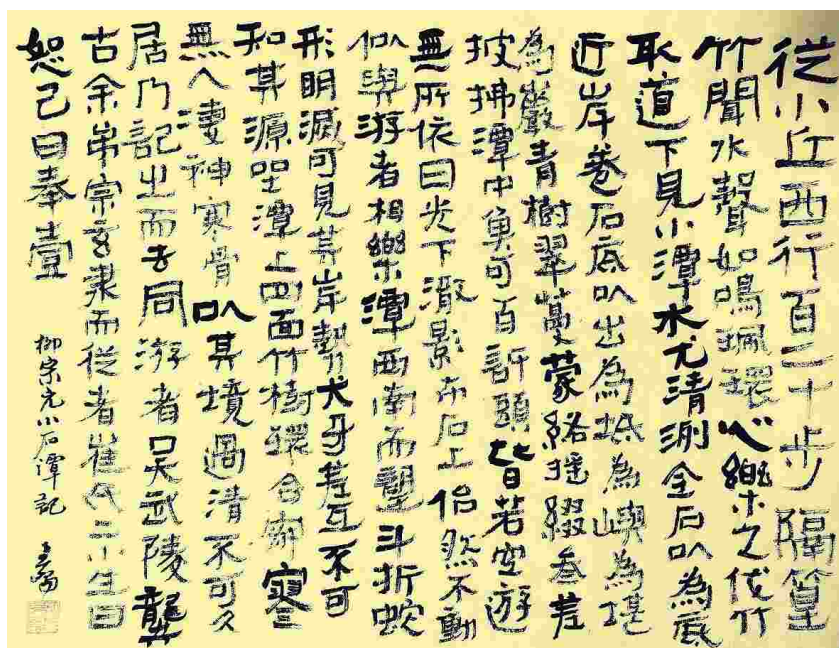 從小丘西行百二十步隔篁
竹聞水聲如鳴珮環心樂之伐竹
取道下見小潭水尤清洌全石以為底
近岸卷石底以出為坻為嶼為堪
為巖青樹翠蔓蒙絡搖綴參差
披拂潭中魚可百許頭皆若空遊
無所依日光下澈影布石上佁然不動
似與游者相樂潭西南而望斗折蛇
形明滅可見其岸勢犬牙差互不可
知其源坐潭上四面竹樹環合寂寥
無人淒神寒骨以其境過清不可久
居乃記之而去同游者吳武陵龔
古余弟宗玄隸而從者崔氏二小生曰
恕己曰奉壹
柳宗元小石潭記 王鏞